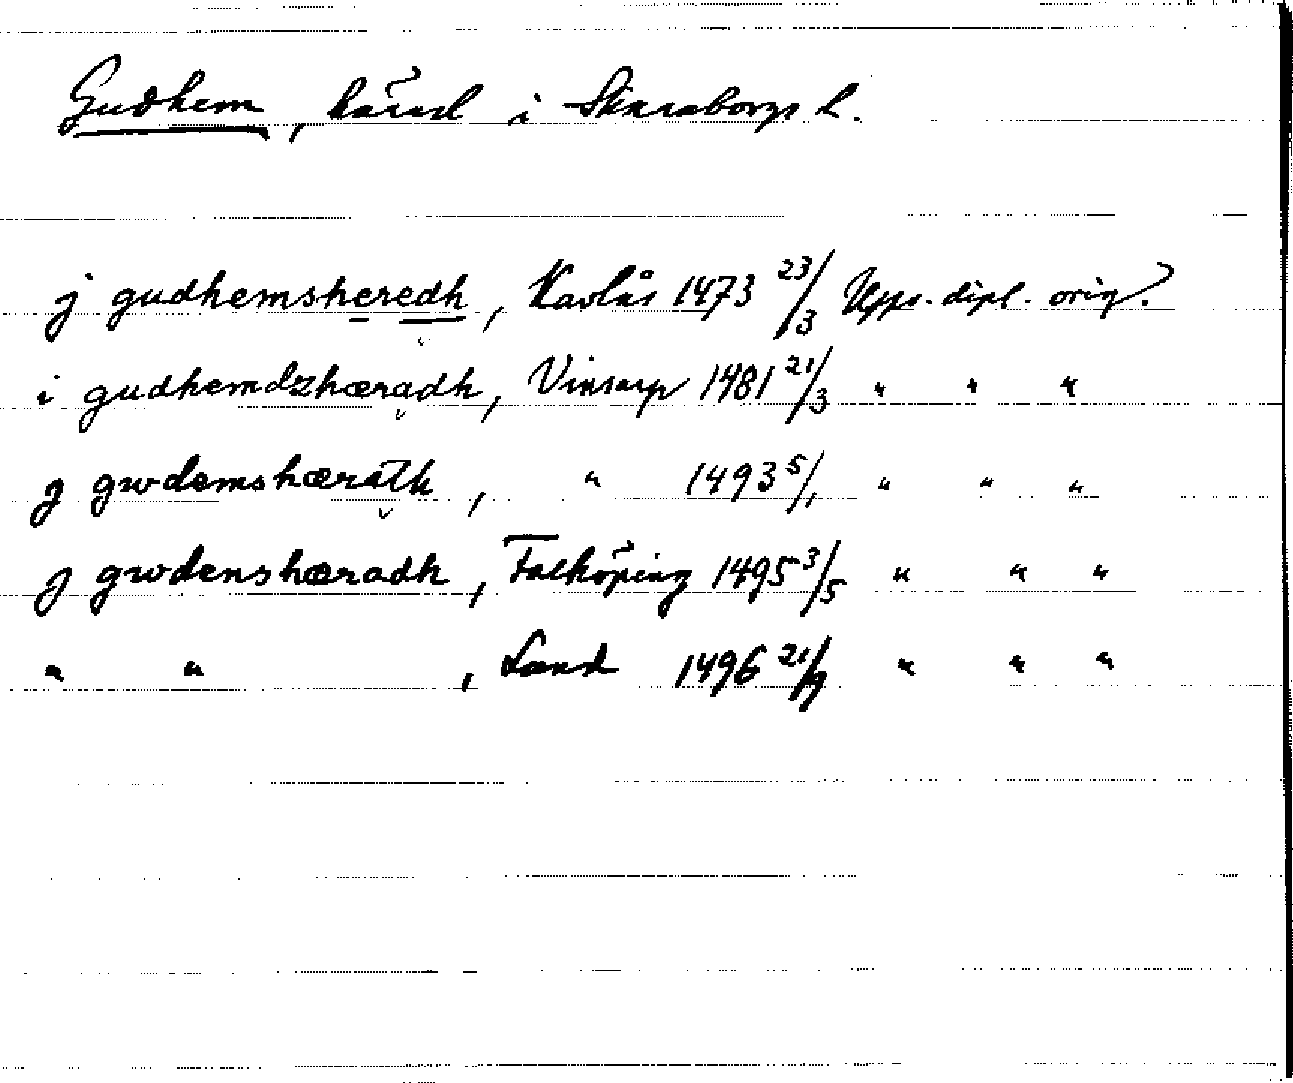 Gudhem, härad i Skaraborgs l.
j gudhemsheredh, Kavlås 1473 23/3 Upps. dipl. orig.
i gudhemdzhæradh, Vinsarp 1481 21/3 " " "
j gwdemshærath, " 1493 5/1 " " "
j gwdenshæradh, Falköping 1495 3/5 " " "
" " , Land 1496 21/9 " " "